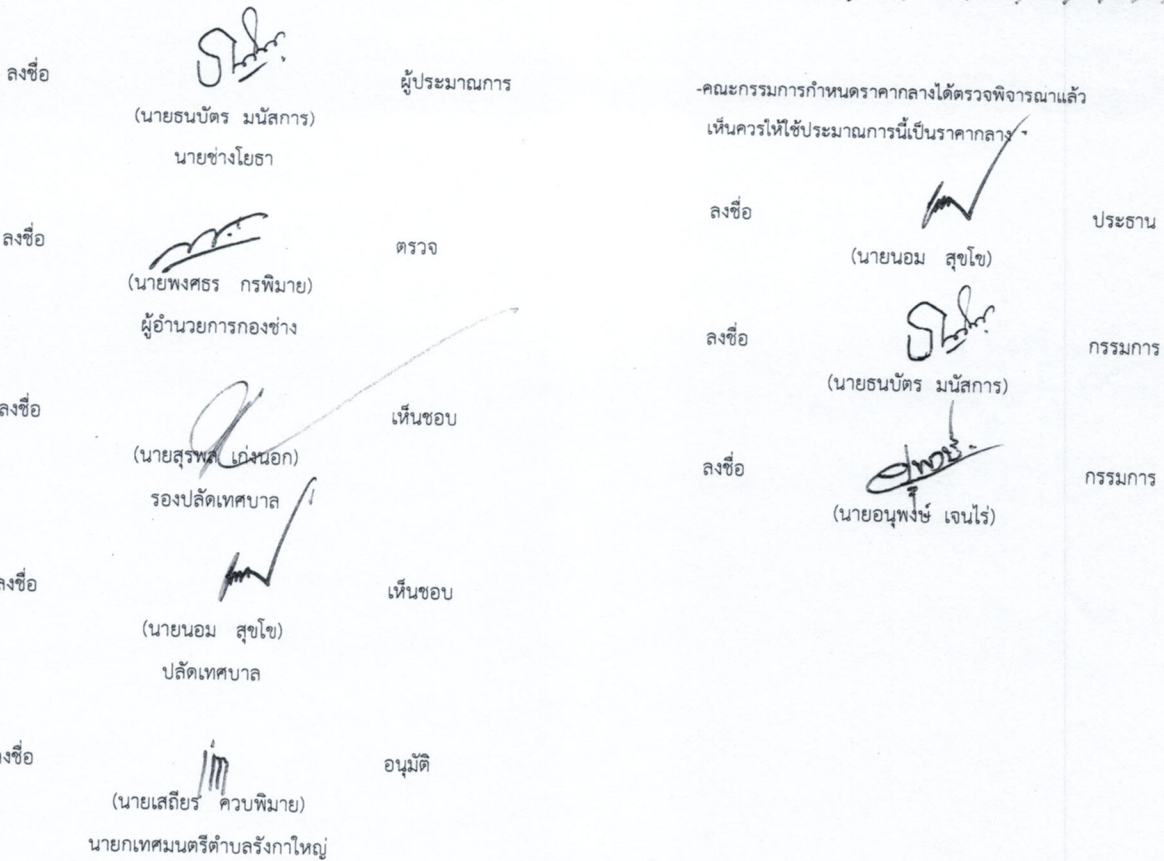 ลงชื่อ ผู้ประมาณการ
(นายธนบัตร มนัสการ)
นายช่างโยธา
ลงชื่อ ตรวจ
(นายพงศธร กรพิมาย)
ผู้อำนวยการกองช่าง
ลงชื่อ เห็นชอบ
(นายสุรพล เก่งนอก)
รองปลัดเทศบาล
ลงชื่อ เห็นชอบ
(นายนอม สุขโข)
ปลัดเทศบาล
ลงชื่อ อนุมัติ
(นายเสถียร ควบพิมาย)
นายกเทศมนตรีตำบลรังกาใหญ่
-คณะกรรมการกำหนดราคากลางได้ตรวจพิจารณาแล้ว
เห็นควรให้ใช้ประมาณการนี้เป็นราคากลาง -
ลงชื่อ ประธาน
(นายนอม สุขโข)
ลงชื่อ กรรมการ
(นายธนบัตร มนัสการ)
ลงชื่อ กรรมการ
(นายอนุพงษ์ เจนไร่)